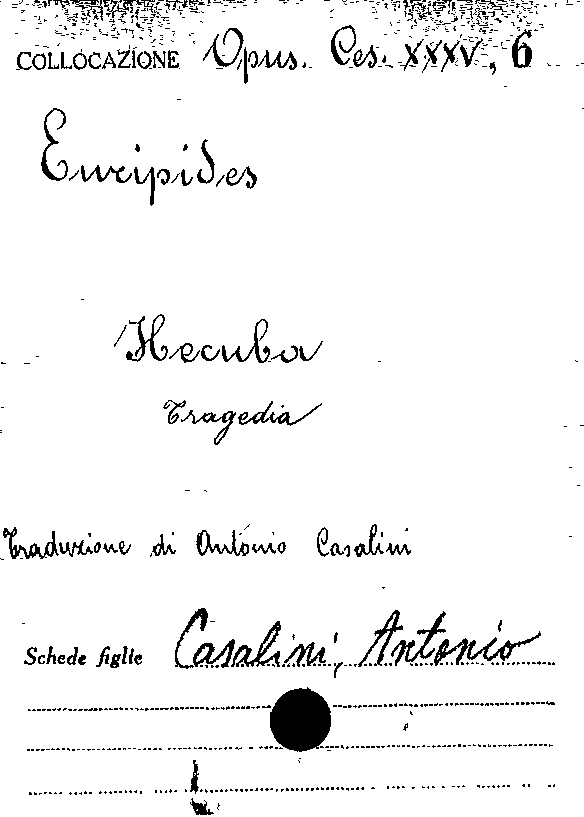 COLLOCAZIONE Opus. Ces. XXXV, 6
Euripides
Hecuba
Tragedia
Traduzione di Antonio Casalini
Schede figlie Casalini, Antonio